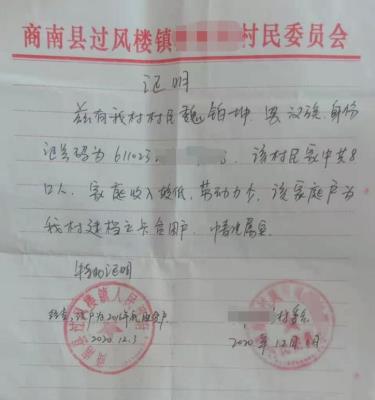 商南县过风楼镇 村民委员会
证明
兹有我村村民魏铂坤,男,汉族,身份
证号码为611023 ,该村民家中共8
口人,家庭收入较低,劳动力少,该家庭户为
我村建档立卡贫困户,情况属实。
特此证明
商南县过风楼镇人民政府
经查,该户为2016年脱贫户
2020.12.3
村委会
2020年12月 日